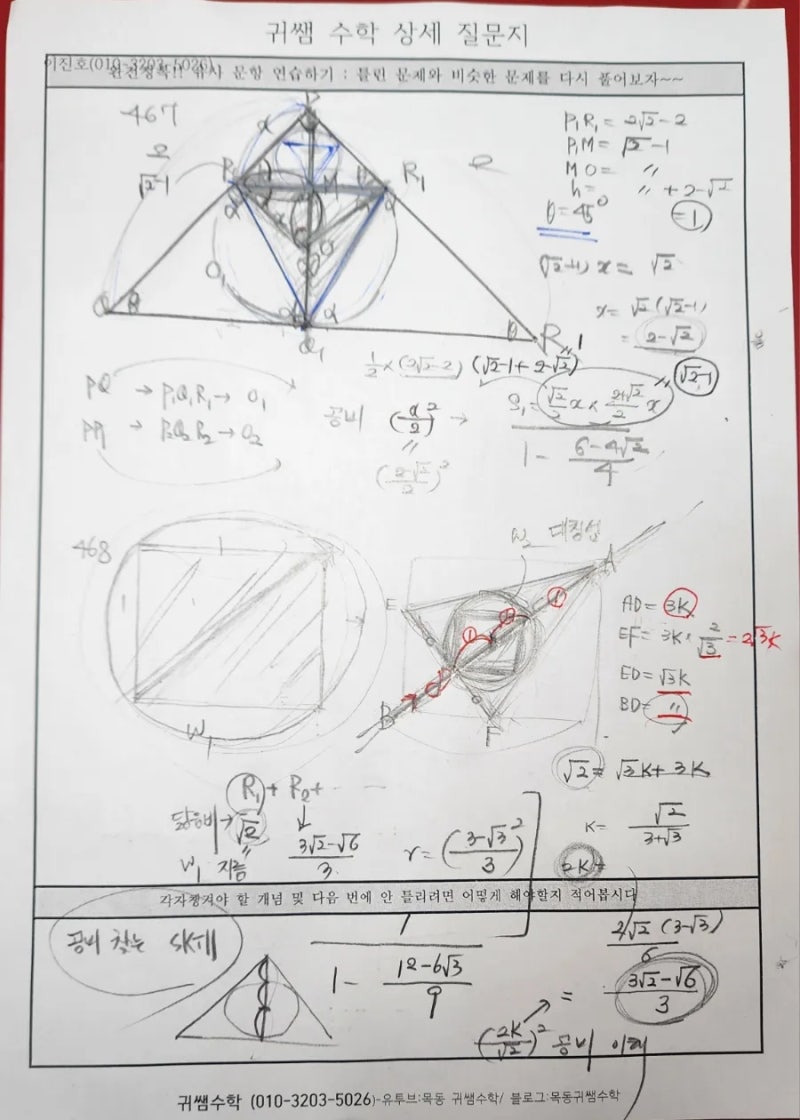 귀쌤 수학 상세 질문지
이진호(010-3203-5026)
완전정복!! 유사 문항 연습하기 : 틀린 문제와 비슷한 문제를 다시 풀어보자~~
467
√2-1
P
R₁
M
O₁
Q
Q₁
R
P₁R₁ = 2√2-2
P₁M = √2-1
MO = 〃
h = 〃 + 2-√2
= 1
θ = 45°
(√2+1) x = √2
x = √2 (√2-1)
= 2-√2
√2-1
1/2 × (2√2-2) (√2-1+2-√2)
PQ → P₁Q₁R₁ → O₁
→ P₂Q₂R₂ → O₂
공비 (x/2)² →
(2-√2/2)²
S₁ = √2/2 x × 2+√2/2 x
1 - 6-4√2/4
468
W₁
W₂ 대칭성
E
A
B
F
AD = 3K
EF = 3K × 2/√3 = 2√3K
ED = √3K
BD = 〃
√2 = √3K + 3K
K = √2/3+√3
2K
R₁ + R₂ +
닮음비 → √2
W₁ 지름
3√2-√6/3
r = (3-√3/3)²
각자 챙겨야 할 개념 및 다음 번에 안 틀리려면 어떻게 해야할지 적어봅시다
공비 찾는 SKill
1 - 12-6√3/9
2√2 (3-√3)/6
= 3√2-√6/3
(2K/√2)² 공비 이해
귀쌤수학 (010-3203-5026)-유투브:목동 귀쌤수학/ 블로그:목동귀쌤수학